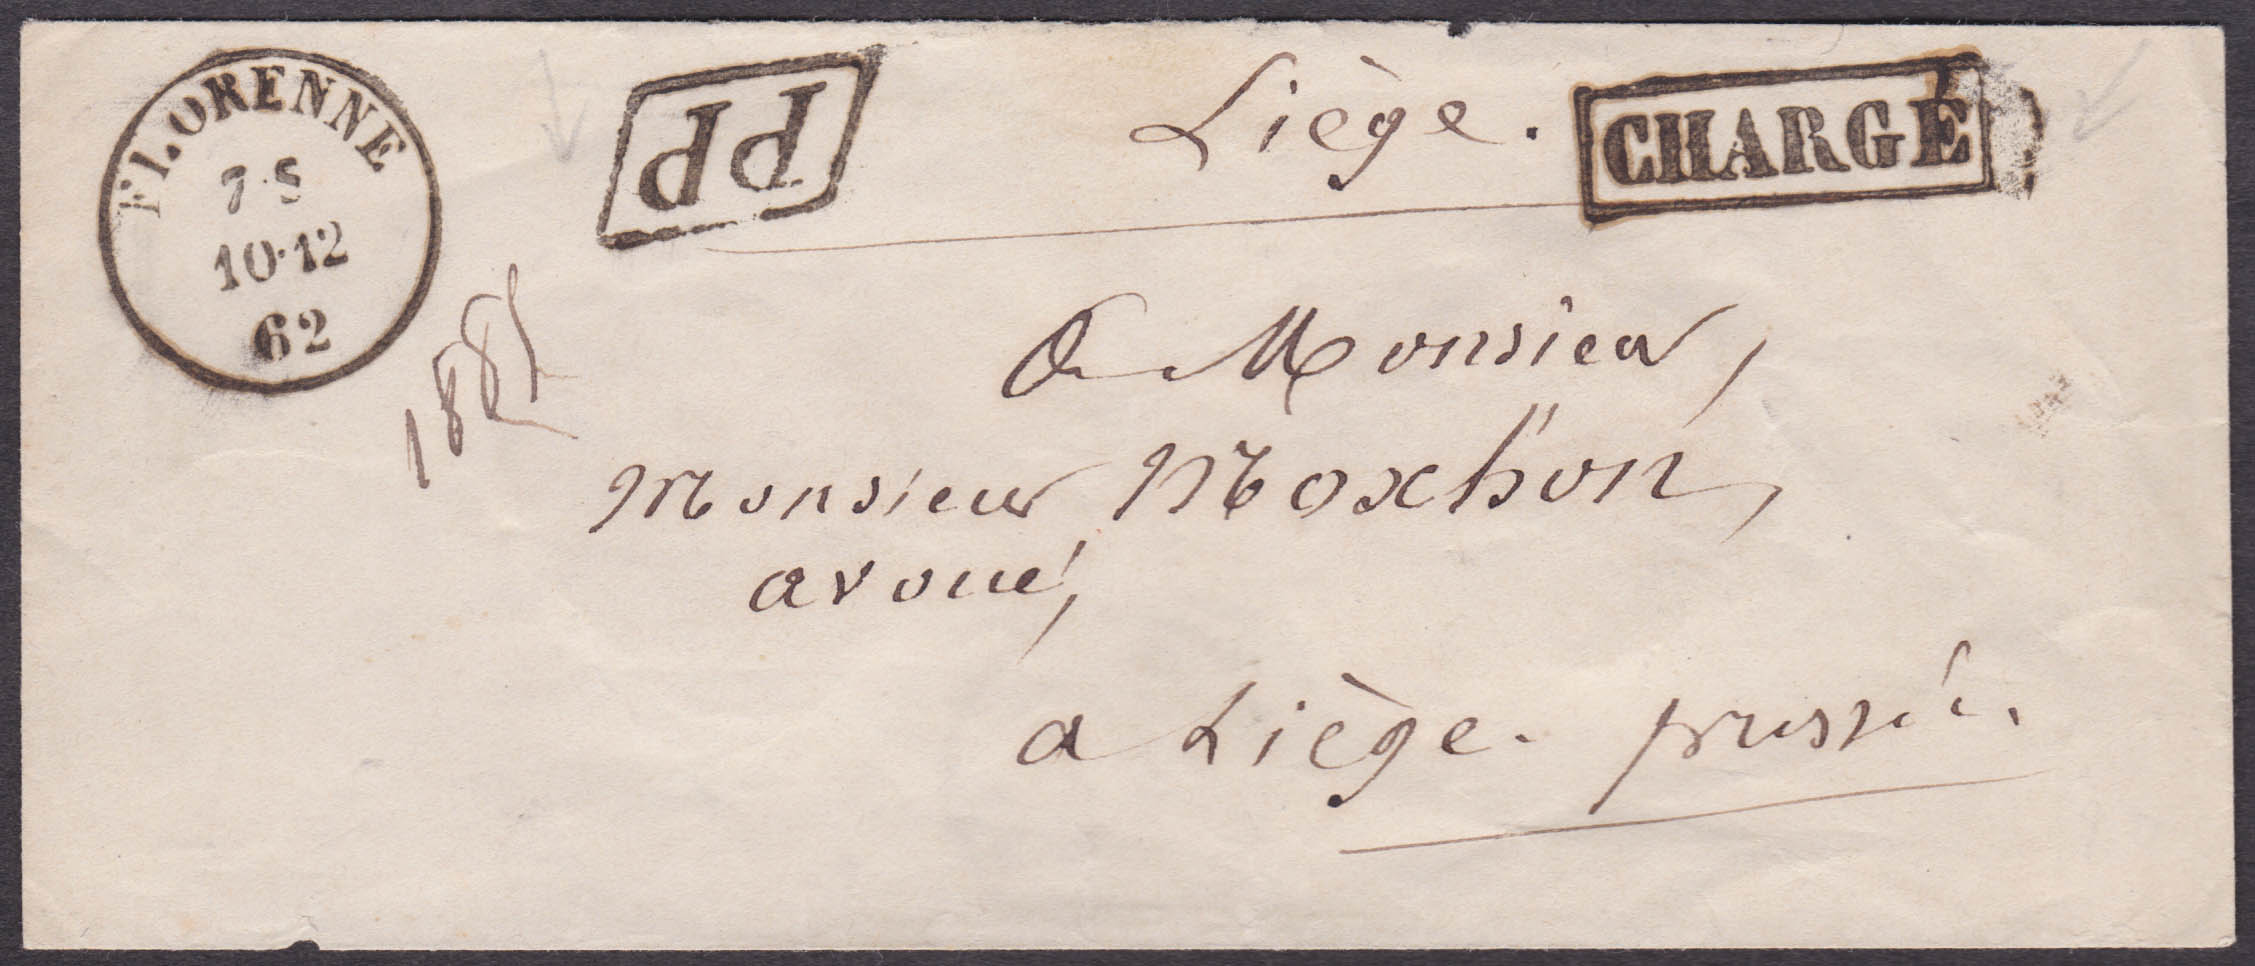 FLORENNE
7·S
10·12
62
PP
Liège.
CHARGÉ
A Monsieur,
Monsieur Moxhon,
avoué,
a Liège. pressée.